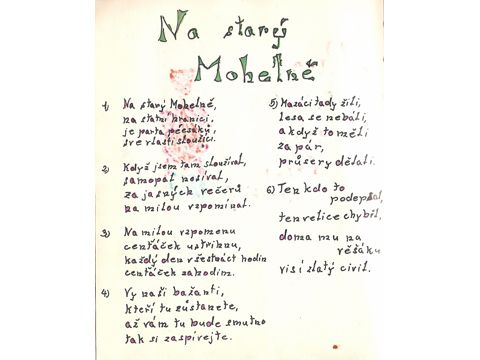 Na starý
Mohelně
1) Na starý Mohelně,
na státní hranici,
je parta péesáků,
své vlasti sloužící.
2) Když jsem tam sloužíval,
samopal nosíval,
za jasných večerů
na milou vzpomínal.
3) Na milou vzpomenu
centáček ustřihnu,
každý den v šestnáct hodin
centáček zahodím.
4) Vy naši bažanti,
kteří tu zůstanete,
až vám tu bude smutno
tak si zaspívejte.
5) Mazáci tady žili,
lesa se nebáli,
a když to měli
za pár,
průsery dělali.
6) Ten kdo to
podepsal,
ten velice chybil,
doma mu na
věšáku
visí zlatý civil.